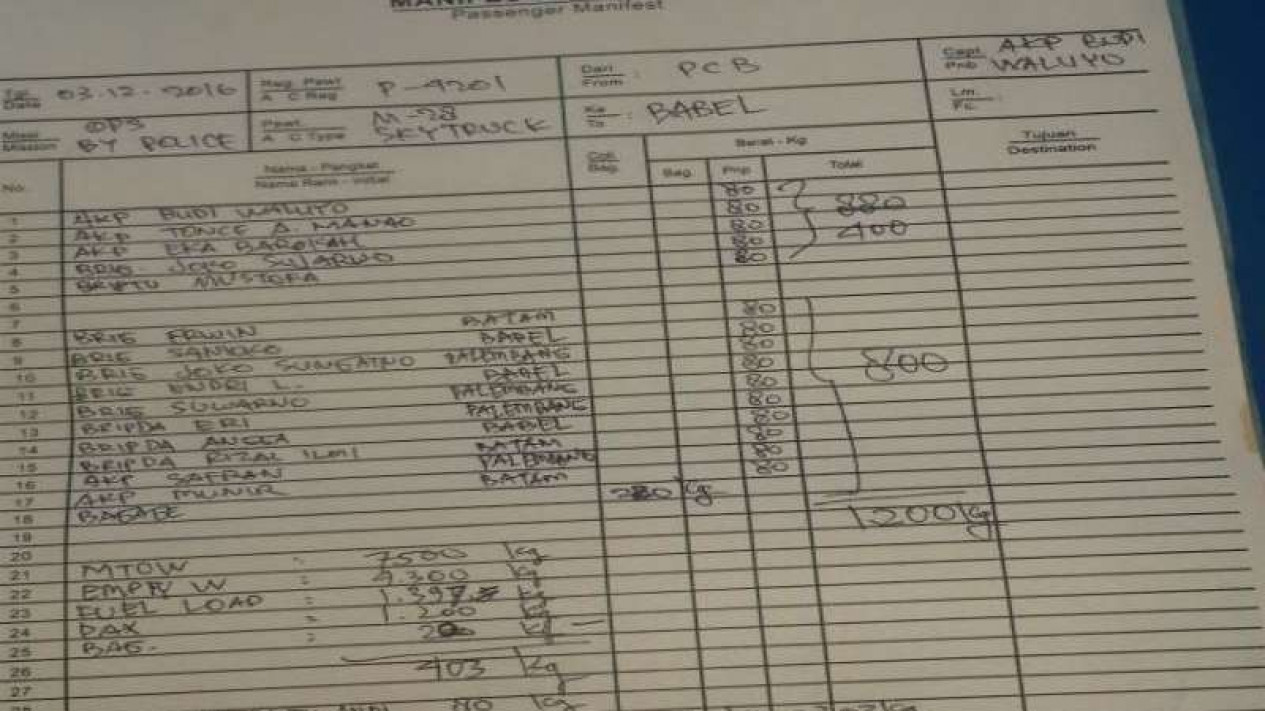 Passenger Manifest
Tgl. Date 03.12.2016 Reg. Pswt A C Reg P-4201 Dari From : PCB Capt. Pnb AKP BUDI WALUYO
Misi Mission OPS BY POLICE Pswt. A C Type M-28 SKYTRUCK Ke To : BABEL Lm. Fc. :
No. Nama - Pangkat Name Rank - Initial Coli Bag. Berat - Kg Tujuan Destination
Bag. Pnp Total
1 AKP BUDI WALUYO 80 880
2 AKP TONCE A. MANAO 80 400
3 AKP EKA BAROKAH 80
4 BRIG. JOKO SUJARWO 80
5 BRIPTU MUSTOFA 80
6
7
8 BRIG ERWIN BATAM 80
9 BRIG SANTOKO BABEL 80
10 BRIG JOKO SUNGATNO PALEMBANG 80
11 BRIG ENDRI L. BABEL 80 800
12 BRIG SUWARNO PALEMBANG 80
13 BRIPDA ERI PALEMBANG 80
14 BRIPDA ANGGA BABEL 80
15 BRIPDA RIZAL ILMI BATAM 80
16 AKP SAFRAN PALEMBANG 80
17 AKP MUNIR BATAM 80
18 BAGAGE Kg 1200 Kg
19
20
21 MTOW : 7500 kg
22 EMPTY W : 4.300 kg
23 FUEL LOAD : kg
24 PAX : 1.200 kg
25 BAG. : kg
26 403 kg
27
80 kg